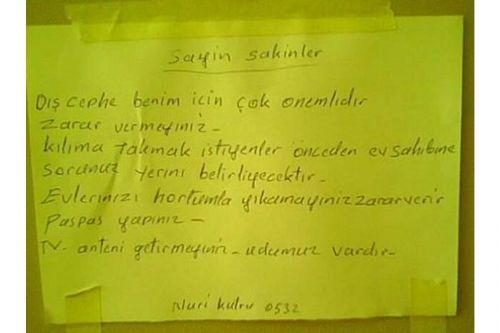 Sayin sakinler
Dış cephe benim için çok onemlidir
Zarar vermeyiniz -
kılıma takmak istiyenler önceden ev sahibine
sorunuz yerini belirliyecektir -
Evlerinizi hortumla yıkamayiniz zarar verir
Paspas yapınız -
TV. anteni getirmeyiniz - udumuz vardır -
Nuri kulru 0532